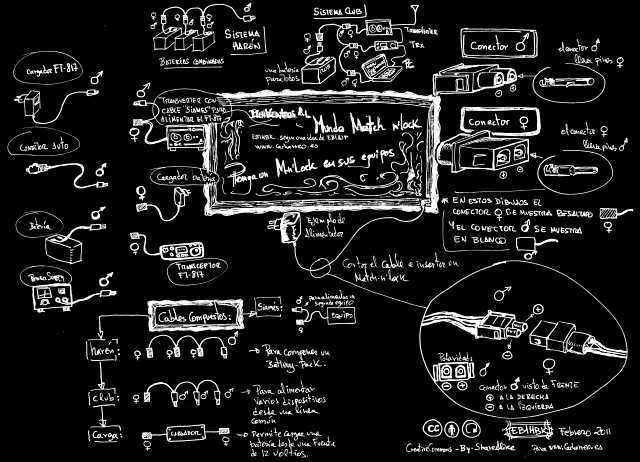 SISTEMA
HARÉN
BATERÍAS COMBINADAS
SISTEMA CLUB
TRANSVERTER
TRX
PC
una batería
para todos
Conector ♂
el conector ♂
lleva pines ♀
Conector ♀
el conector ♀
lleva pines ♂
Cargador FT-817
TRANSVERTER CON
CABLE "SIAMÉS" PARA
ALIMENTAR EL FT-817
Batería
Cargador batería
TRANSCEPTOR
FT-817
Power Supply
Bienvenidos al
Mundo Match n'lock
www.
Ponga un Mn'Lock en sus equipos
Ejemplo de
Alimentador
* EN ESTOS DIBUJOS EL
CONECTOR ♀ SE MUESTRA RESALTADO
Y EL CONECTOR ♂ SE MUESTRA
EN BLANCO
Cortar el Cable e insertar un
Match-n'lock
Cables Compuestos:
Siamés:
para alimentar un
segundo equipo
EQUIPO
Harén:
→ Para componer un
Battery-Pack.
Club:
→ Para alimentar
varios dispositivos
desde una línea
común
Carga:
CARGADOR
→ Permite cargar una
batería desde una Fuente
de 12 voltios.
Polaridad:
conector ♂ visto de FRENTE
⊕ A LA DERECHA
⊖ A LA IZQUIERDA
Febrero 2011
Creative Commons - By - ShareAlike
Para www.